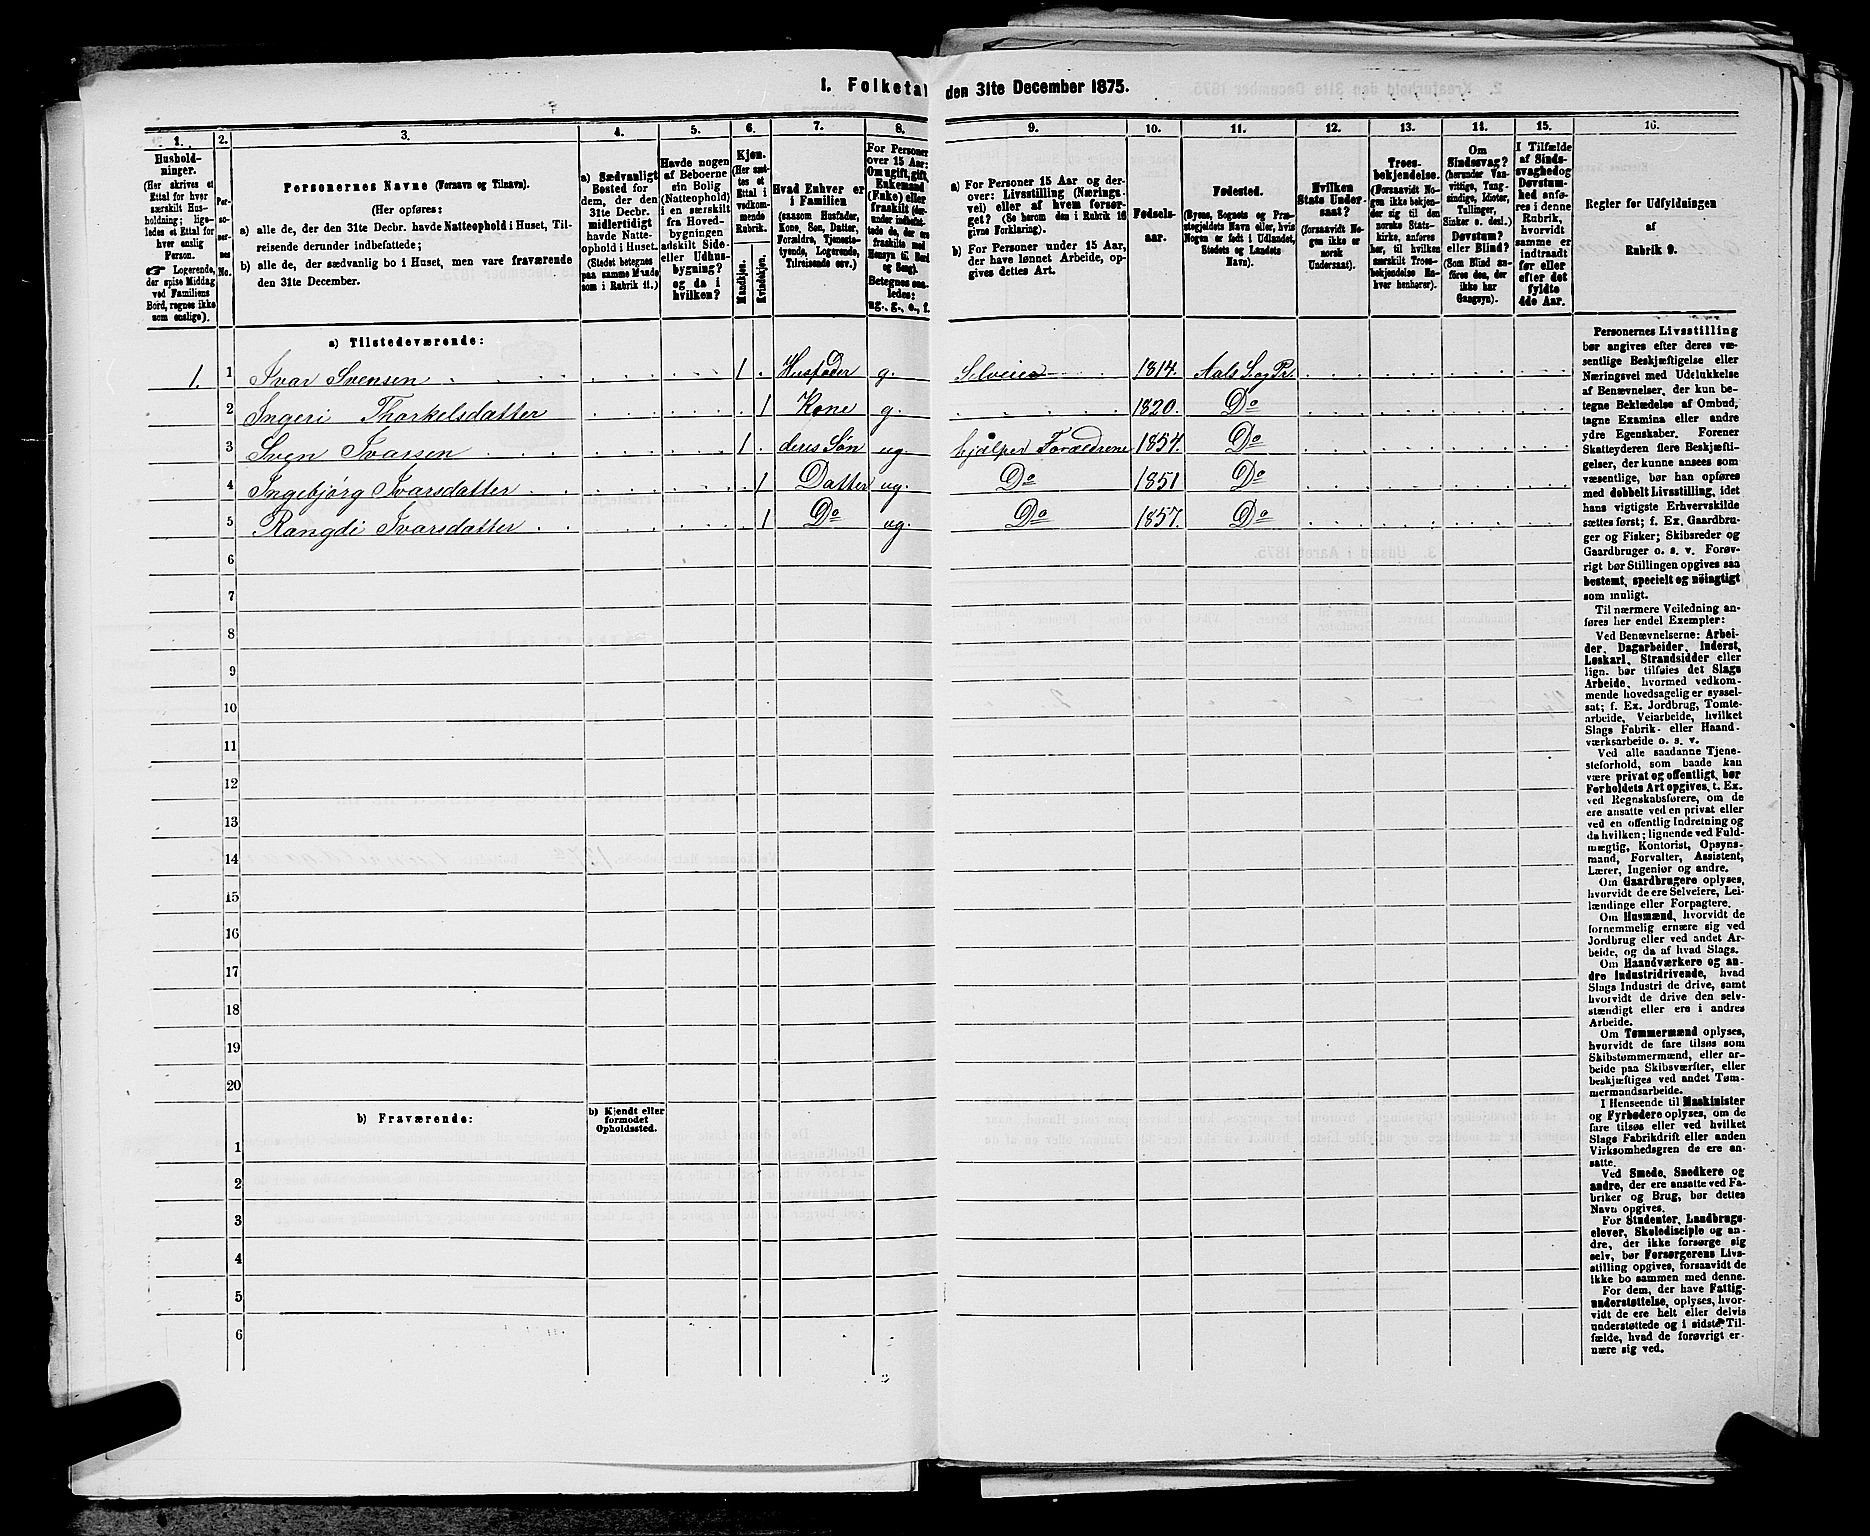 1. Folketæl den 31te December 1875.
1. 2. 3. 4. 5. 6. 7. 8. 9. 10. 11. 12. 13. 14. 15. 16.
Husholdninger. (Her skrives et Ettal for hver særskilt Husholdning; ligeledes et Ettal for hver enslig Person. ☛ Logerende, der spise Middag ved Familiens Bord, regnes ikke som enslige).
Personernes No.
Personernes Navne (Fornavn og Tilnavn).
(Her opføres:
a) alle de, der den 31te Decbr. havde Natteophold i Huset, Tilreisende derunder indbefattede;
b) alle de, der sædvanlig bo i Huset, men vare fraværende den 31te December.
a) Sædvanligt Bosted for dem, der den 31te Decbr. midlertidigt havde Natteophold i Huset. (Stedet betegnes paa samme Maade som i Rubrik 11.)
Havde nogen af Beboerne sin Bolig (Natteophold) i en særskilt fra Hovedbygningen adskilt Side- eller Udhusbygning? og da i hvilken?
Kjøn. (Her sættes et Ettal i vedkommende Rubrik.
Mandkjøn. Kvindekjøn.
Hvad Enhver er i Familien (saasom Husfader, Kone, Søn, Datter, Forældre, Tjenestetyende, Logerende, Tilreisende osv.)
For Personer over 15 Aar: Om ugift, gift, Enkemand (Enke) eller fraskilt (derunder indbefattede de, der ere fraskilte med Hensyn til Bord og Seng). Betegnes saaledes: ug., g., e., f.
a) For Personer 15 Aar og derover: Livsstilling (Næringsvei) eller af hvem forsørget? (Se herom den i Rubrik 16 givne Forklaring).
b) For Personer under 15 Aar, der have lønnet Arbeide, opgives dettes Art.
Fødselsaar.
Fødested. (Byens, Sognets og Præstegjeldets Navn eller, hvis Nogen er født i Udlandet, Stedets og Landets Navn).
Hvilken Stats Undersaat? (forsaavidt Nogen ikke er norsk Undersaat).
Troesbekjendelse. (Forsaavidt Nogen ikke bekjender sig til den norske Statskirke, anføres her, til hvilken særskilt Troesbekjendelse Enhver henhører).
Om Sindssvag? (herunder Vanvittige, Tungsindige, Idioter, Tullinger, Sinker o. desl.) Døvstum? eller Blind? (Som Blind anføres den, der ikke har Gangsyn).
I Tilfælde af Sindssvaghed og Døvstumhed anføres i denne Rubrik, hvorvidt samme er indtraadt før eller efter det fyldte 4de Aar.
Regler før Udfyldningen af Rubrik 9.
a) Tilstedeværende:
1. 1 Ivar Svensen 1 Husfader g. Selveier 1814. Aals S. og Pr.
2 Ingeri Thorkelsdatter 1 Kone g. 1820. Do
3 Sven Ivarsen 1 deres Søn ug. hjælper Forældrene 1854. Do
4 Ingebjörg Ivarsdatter 1 Datter ug. Do 1851 Do
5 Rangdi Ivarsdatter 1 Do ug. Do 1857. Do
6
7
8
9
10
11
12
13
14
15
16
17
18
19
20
b) Fraværende: b) Kjendt eller formodet Opholdssted.
1
2
3
4
5
6
Personernes Livsstilling
bør angives efter deres væ-
sentlige Beskjæftigelse eller
Næringsvei med Udelukkelse
af Benævnelser, der kun be-
tegne Beklædelse af Ombud,
tagne Examina eller andre
ydre Egenskaber. Forener
Skatteyderen flere Beskjæfti-
gelser, der kunne ansees som
væsentlige, bør han opføres
med dobbelt Livsstilling, idet
hans vigtigste Erhvervskilde
sættes først; f. Ex. Gaardbru-
ger og Fisker; Skibsreder og
Gaardbruger o. s. v. Forøv-
rigt bør Stillingen opgives saa
bestemt, specielt og nöiagtigt
som muligt.
Til nærmere Veiledning an-
føres her endel Exempler:
Ved Benævnelserne: Arbei-
der, Dagarbeider, Inderst,
Løskarl, Strandsidder eller
lign. bør tilføies det Slags
Arbeide, hvormed vedkom-
mende hovedsagelig er syssel-
sat; f. Ex. Jordbrug, Tomte-
arbeide, Veiarbeide, hvilket
Slags Fabrik- eller Haand-
værksarbeide o. s. v.
Ved alle saadanne Tjene-
steforhold, som baade kan
være privat og offentligt, bør
Forholdets Art opgives, t. Ex.
ved Regnskabsførere, om de
ere ansatte ved en privat eller
ved en offentlig Indretning og
da hvilken; lignende ved Fuld-
mægtig, Kontorist, Opsyns-
mand, Forvalter, Assistent,
Lærer, Ingeniør og andre.
Om Gaardbrugere oplyses,
hvorvidt de ere Selveiere, Lei-
lændinge eller Forpagtere.
Om Husmænd, hvorvidt de
fornemmelig ernære sig ved
Jordbrug eller ved andet Ar-
beide, og da af hvad Slags.
Om Haandværkere og an-
dre Industridrivende, hvad
Slags Industri de drive, samt
hvorvidt de drive den selv-
stændigt eller ere i andres
Arbeide.
Om Tømmermænd oplyses,
hvorvidt de fare tilsøs som
Skibstømmermænd, eller ar-
beide paa Skibsværfter, eller
beskjæftiges ved andet Tøm-
mermandsarbeide.
I Henseende til Maskinister
og Fyrbødere oplyses, om de
fare tilsøs eller ved hvilket
Slags Fabrikdrift eller anden
Virksomhedsgren de ere an-
satte.
Ved Smede, Snedkere og
andre, der ere ansatte ved Fa-
briker og Brug, bør dettes
Navn opgives.
For Studenter, Landbrugs-
elever, Skoledisciple og an-
dre, der ikke forsørge sig
selv, bør Forsørgerens Livs-
stilling opgives, forsaavidt de
ikke bo sammen med denne.
For dem, der have Fattig-
understøttelse, oplyses, hvor-
vidt de ere helt eller delvis
understøttede og i sidste Til-
fælde, hvad de forøvrigt er-
nære sig ved.